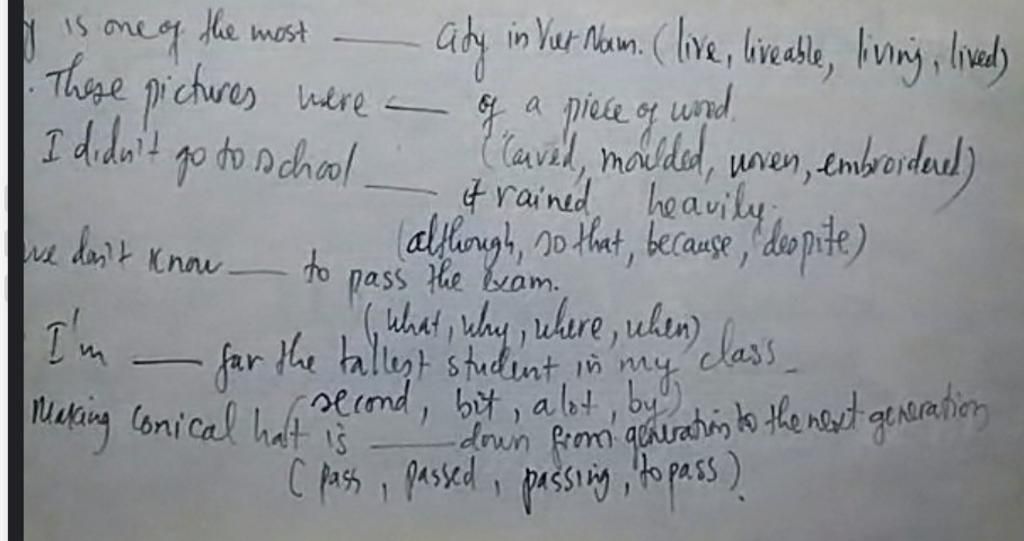 is one of the most ____ city in Viet Nam. (live, liveable, living, lived)
. These pictures were ____ of a piece of word.
(carved, moulded, woven, embroidered)
I didn't go to school ____ it rained heavily.
(although, so that, because, despite)
we don't know ____ to pass the exam.
(what, why, where, when)
I'm ____ far the tallest student in my class
(second, bit, a lot, by)
Making conical hatt is ____ down from generation to the next generation
(pass, passed, passing, to pass).